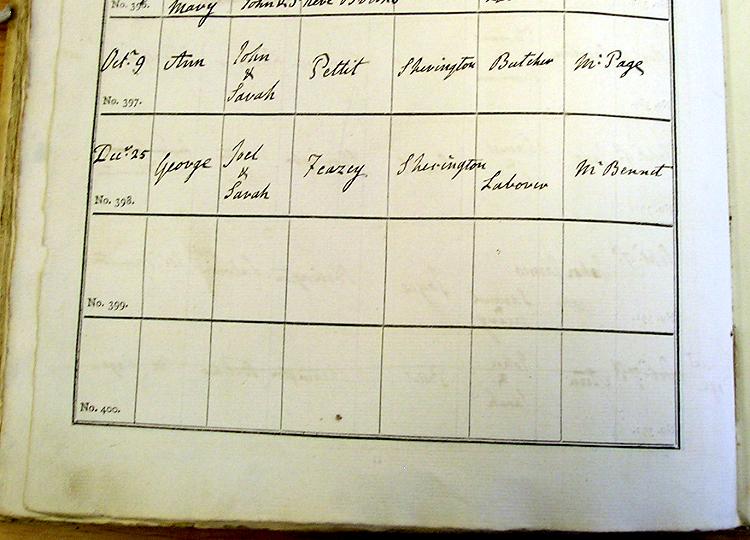 No. 396. Mary John &
Octr. 9 Ann John & Sarah Pettit Sherington Butcher Mr. Page
No. 397.
Decr. 25 George Joel & Sarah Feazey Sherington Laborer Mr. Bennet
No. 398.
No. 399.
No. 400.